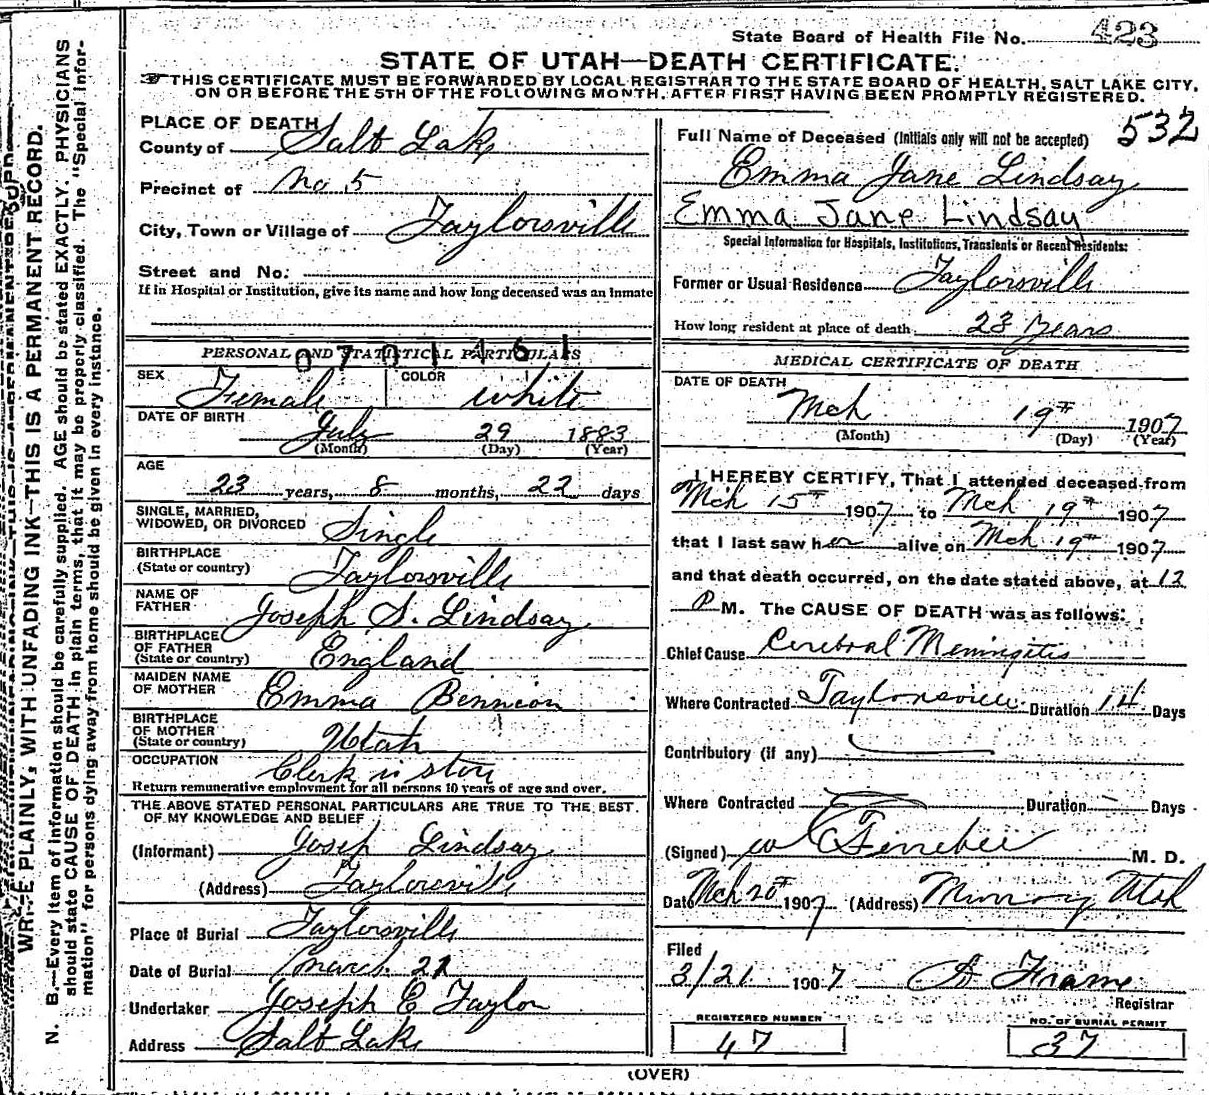 State Board of Health File No. 423
STATE OF UTAH—DEATH CERTIFICATE.
THIS CERTIFICATE MUST BE FORWARDED BY LOCAL REGISTRAR TO THE STATE BOARD OF HEALTH, SALT LAKE CITY,
ON OR BEFORE THE 5TH OF THE FOLLOWING MONTH, AFTER FIRST HAVING BEEN PROMPTLY REGISTERED.
WRITE PLAINLY, WITH UNFADING INK—THIS IS A PERMANENT RECORD.
N. B.—Every item of information should be carefully supplied. AGE should be stated EXACTLY. PHYSICIANS
should state CAUSE OF DEATH in plain terms, that it may be properly classified. The "Special Infor-
mation" for persons dying away from home should be given in every instance.
PLACE OF DEATH
County of Salt Lake
Precinct of No 5
City, Town or Village of Taylorsville
Street and No.
If in Hospital or Institution, give its name and how long deceased was an Inmate
PERSONAL AND STATISTICAL PARTICULARS
0701461
SEX Female COLOR White
DATE OF BIRTH July 29 1883
(Month) (Day) (Year)
AGE
23 years, 8 months, 22 days
SINGLE, MARRIED,
WIDOWED, OR DIVORCED Single
BIRTHPLACE
(State or country) Taylorsville
NAME OF
FATHER Joseph S. Lindsay
BIRTHPLACE
OF FATHER
(State or country) England
MAIDEN NAME
OF MOTHER Emma Bennion
BIRTHPLACE
OF MOTHER
(State or country) Utah
OCCUPATION Clerk in store
Return remunerative employment for all persons 10 years of age and over.
THE ABOVE STATED PERSONAL PARTICULARS ARE TRUE TO THE BEST
OF MY KNOWLEDGE AND BELIEF
(Informant) Joseph Lindsay
(Address) Taylorsville
Place of Burial Taylorsville
Date of Burial March 21
Undertaker Joseph E Taylor
Address Salt Lake
532
Full Name of Deceased (Initials only will not be accepted)
Emma Jane Lindsay
Emma Jane Lindsay
Special Information for Hospitals, Institutions, Transients or Recent Residents:
Former or Usual Residence Taylorsville
How long resident at place of death 23 Years
MEDICAL CERTIFICATE OF DEATH
DATE OF DEATH
Mch 19th 1907
(Month) (Day) (Year)
I HEREBY CERTIFY, That I attended deceased from
Mch 15th 1907 to Mch 19th 1907
that I last saw her alive on Mch 19th 1907
and that death occurred, on the date stated above, at 12
P M. The CAUSE OF DEATH was as follows:
Chief Cause Cerebral Meningitis
Where Contracted Taylorsville Duration 14 Days
Contributory (if any)
Where Contracted Duration Days
(Signed) M. D.
Date Mch 20th 1907 (Address) Murray Utah
Filed
3/21 1907 A Frame
Registrar
REGISTERED NUMBER
47
NO. OF BURIAL PERMIT
37
(OVER)